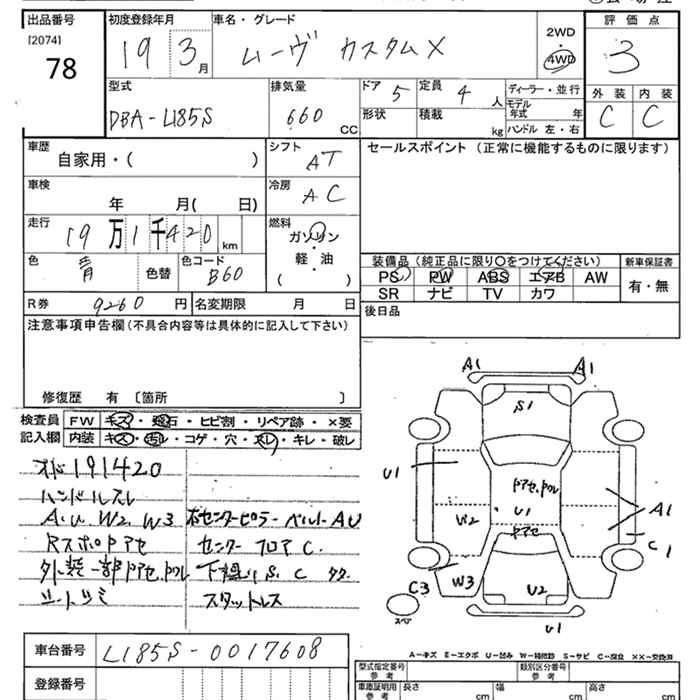 出品番号 初度登録年月 車名・グレード 評価点
[2074] 78 19 3月 ムーヴ カスタムX 2WD・4WD 3
型式 排気量 ドア 5 定員 4人 ディーラー・並行 外装 内装
DBA-L185S 660 CC 形状 積載 kg モデル年式 年 ハンドル 左・右 C C
車歴 シフト セールスポイント (正常に機能するものに限ります)
自家用・( ) AT
車検 冷房
年 月( 日) AC
走行 燃料
19万1千420km ガソリン
軽・油
( )
色 色替 色コード 装備品(純正品に限り○をつけてください) 新車保証書
青 B60 PS PW ABS エアB AW 有・無
R券 9260円 名変期限 月 日 SR ナビ TV カワ
後日品
注意事項申告欄(不具合内容等は具体的に記入して下さい)
修復歴 有 〔箇所 〕
検査員 FW キズ・飛石・ヒビ割・リペア跡・×要
記入欄 内装 キズ・汚レ・コゲ・穴・スレ・キレ・破レ
A1 A1
S1
U1 ドアセ、ドフル
W2 U1 A1
ドアセ C1
C3 W3 U2
スペア U1
191420
ハンドルスレ
A.U. W2 W3 右センターピラーベルトAU
RスポPアセ センターフロアC.
外装一部ドアセ、ドフル 下廻りS.C
スタットレス
A-キズ E-エクボ U-凹み W-補修跡 S-サビ C-腐食 ××-交換済
車台番号 L185S-0017608
登録番号
型式指定番号 参考 類別区分番号 参考
車庫証明用 参考 長さ cm 幅 cm 高さ cm